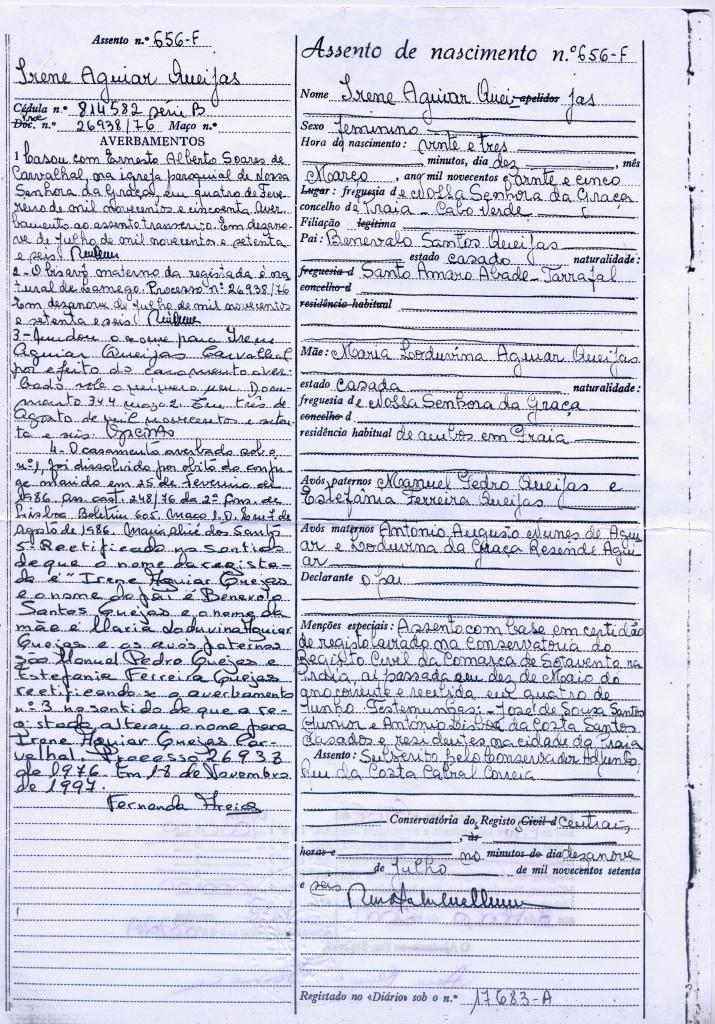 Assento n.º 656-F
Irene Aguiar Queijas
Cédula n.º 814582 série B
Doc. n.º 26938/76 Maço n.º
AVERBAMENTOS
1 Casou com Ernesto Alberto Soares de
Carvalhal, na igreja paroquial de Nossa
Senhora da Graça, em quatro de Feve-
reiro de mil novecentos e cincoenta. Aver-
bamento ao assento transcrito. Em dezano-
ve de Julho de mil novecentos e setenta
e seis.
2 - O bisavô materno da registada é na-
tural de Lamego. Processo nº 26938/76
Em dezanove de Julho de mil novecentos
e setenta e seis
3 - Mudou o nome para Irene
Aguiar Queijas Carvalhal
por efeito do casamento aver-
bado sob o número um. Docu-
mento 344 maço 2. Em três de
Agosto de mil novecentos e seten-
ta e seis.
4 - O casamento averbado sob o
nº 1, foi dissolvido por óbito do conju-
ge marido em 25 de Fevereiro de
1986. 248/76 da 2ª Cons. de
Lisboa. Boletim 605. Maço 1.D. Em 7 de
Agosto de 1986. Maria dos Santos
5 - Rectificado no sentido
de que o nome da regista-
da é "Irene Aguiar Queijas
e o nome do pai é Benevolo
Santos Queijas e o nome da
mãe é Maria Loduvina Aguiar
Queijas e os avós paternos
são Manuel Pedro Queijas e
Estefania Ferreira Queijas
rectificando-se o averbamento
nº 3 no sentido de que a re-
gistada alterou o nome para
Irene Aguiar Queijas Car-
valhal. Processo 26.938
de 1976. Em 18 de Novembro
de 1997.
Fernanda
Assento de nascimento n.º 656-F
Nome Irene Aguiar Quei apelidos jas
Sexo Feminino
Hora do nascimento: vinte e três
minutos, dia dez, mês
Março, ano mil novecentos e vinte e cinco
Lugar: freguesia de Nossa Senhora da Graça
concelho de Praia - Cabo Verde
Filiação legítima
Pai: Benevolo Santos Queijas
estado casado naturalidade:
freguesia d Santo Amaro Abade - Tarrafal
concelho d
residência habitual
Mãe: Maria Loduvina Aguiar Queijas
estado casada naturalidade:
freguesia de Nossa Senhora da Graça
concelho d
residência habitual de ambos em Praia
Avós paternos Manuel Pedro Queijas e
Estefânia Ferreira Queijas
Avós maternos António Augusto Nunes de Agui
ar e Loduvina da Graça Resende Agui
ar
Declarante o pai
Menções especiais: Assento com base em certidão
de registo lavrado na Conservatória do
Registo Civil da Comarca de Sotavento na
Praia, aí passada em dez de Maio do
ano corrente e recebida em quatro de
Junho. Testemunhas: - José de Sousa Santos
Júnior e António Lisboa da Costa Santos
casados e residentes na cidade da Praia
Assento: Subscrito pelo Conservador Adjunto,
Rui da Costa Cabral Correia
Conservatória do Registo Civil d Centrais
, às
horas e no minutos do dia dezanove
de Julho de mil novecentos setenta
e seis
Registado no «Diário» sob o n.º 17683-A